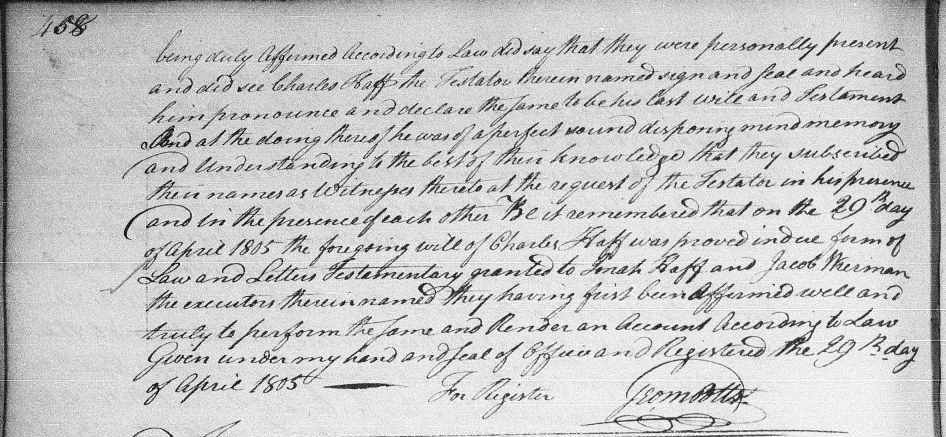 458
being duly Affirmed According to Law did say that they were personally present
and did see Charles Haff the Testator therein named sign and seal and heard
him pronounce and declare the same to be his last will and Testament
And at the doing thereof he was of a perfect sound disposing mind memory
and Understanding to the best of their knowledge that they subscribed
their names as Witnesses thereto at the request of the Testator in his presence
and in the presence of each other Be it remembered that on the 29th day
of April 1805 the foregoing will of Charles Haff was proved in due form of
Law and Letters Testamentary granted to Jonah Haff and Jacob
the executors therein named they having first been Affirmed well and
truly to perform the same and Render an Account According to Law
Given under my hand and seal of Office and Registered the 29th day
of April 1805 — For Register